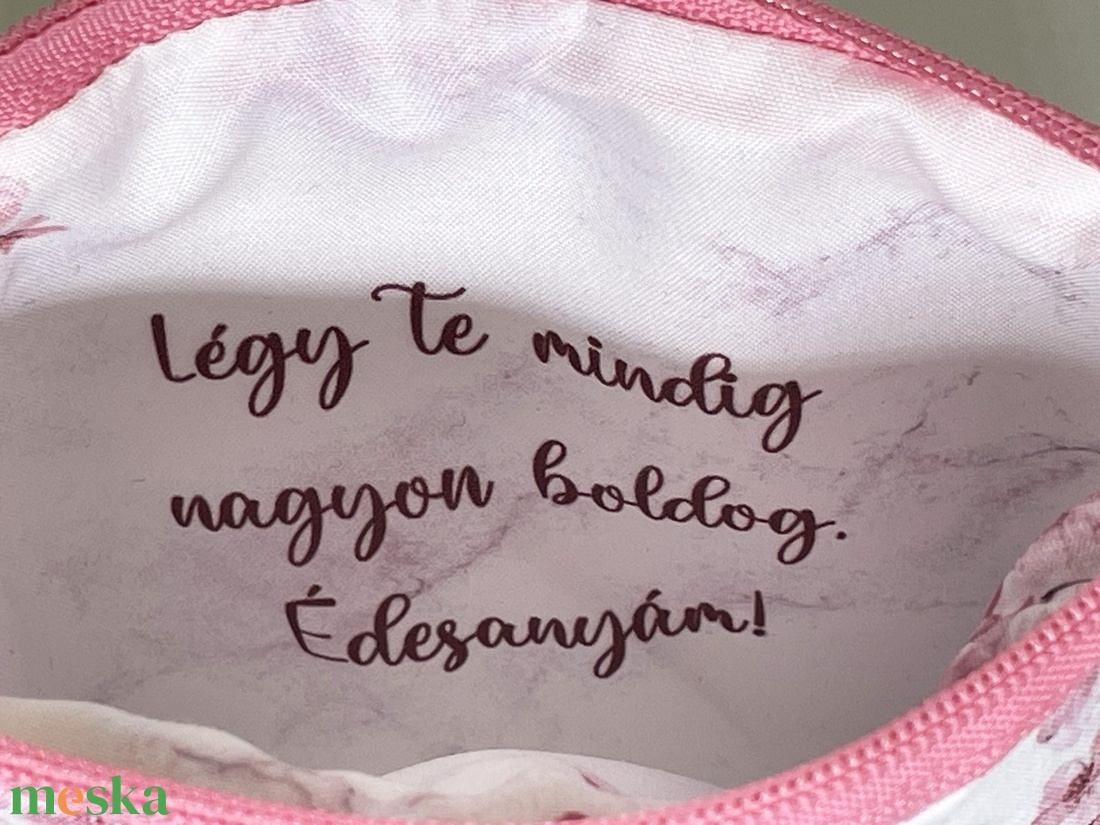 Légy Te mindig
nagyon boldog.
Édesanyám!
meska